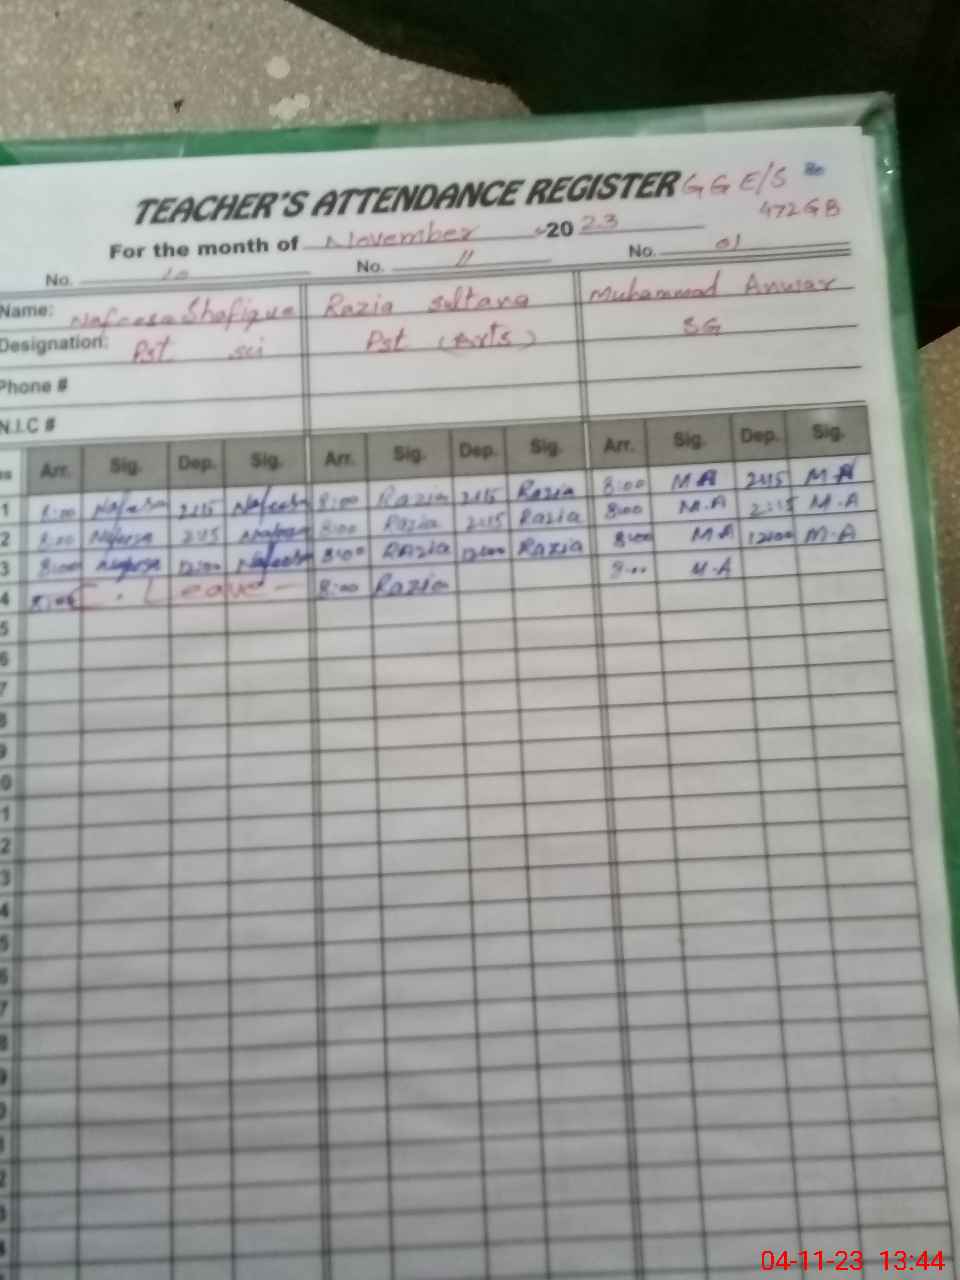 TEACHER'S ATTENDANCE REGISTER G G E/S
472 GB
For the month of November 2023
No. 10 No. 11 No. 01
Name: Nafeesa Shafique Razia Sultana Muhammad Anwar
Designation: Pst sci Pst (Arts) SG
Phone #
N.I.C #
Arr. Sig. Dep. Sig. Arr. Sig. Dep. Sig. Arr. Sig. Dep. Sig.
1 8:00 Nafeesa 2:15 Nafeesa 8:00 Razia 2:15 Razia 8:00 M A 2:15 M A
2 8:00 Nafeesa 2:15 Nafeesa 8:00 Razia 2:15 Razia 8:00 M.A 2:15 M.A
3 8:00 Nafeesa 12:00 Nafeesa 8:00 Razia 12:00 Razia 8:00 M A 12:00 M-A
4 8:00 C. Leave 8:00 Razia 8:00 M.A
5
6
7
8
9
0
1
2
3
4
5
6
7
8
9
0
1
2
3
4
04-11-23 13:44